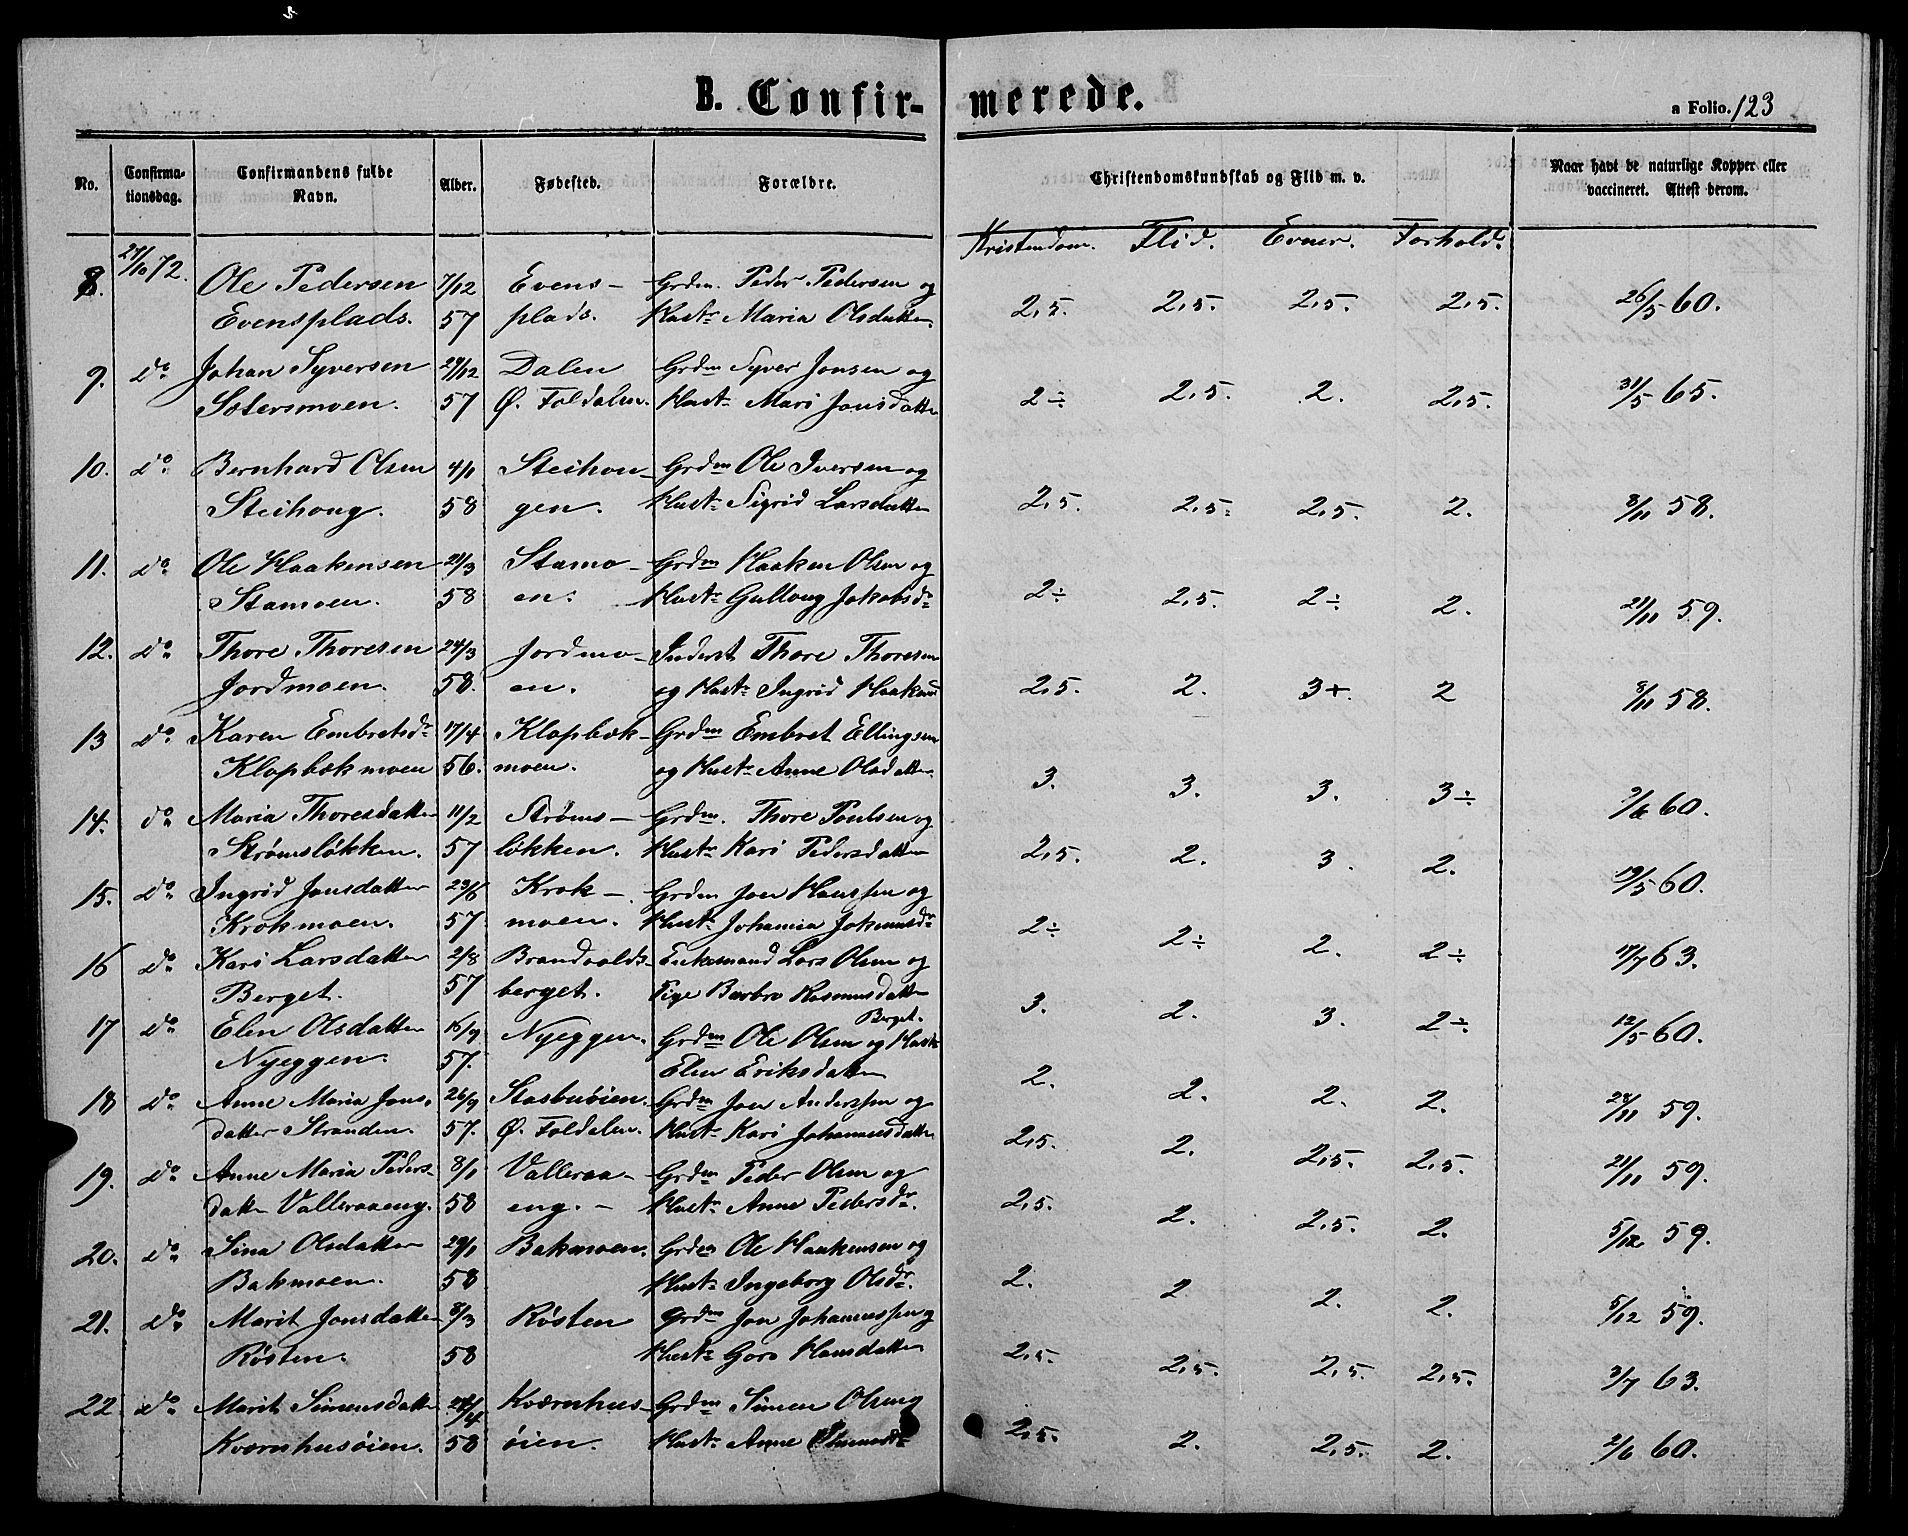 B. Confir-
merede.
a Folio. 123
No.
Confirma-
tionsdag.
Confirmandens fulde
Navn.
Alder.
Fødested.
Forældre.
Christendomskundskab og Flid m. v.
Naar havt de naturlige Kopper eller
vaccineret. Attest derom.
Kristendom. Flid. Evner. Forhold.
8. 27/10 72. Ole Pedersen 7/12 Evens- Grdm. Peder Pedersen og
Evensplads. 57 plads. Hust. Maria Olsdatter.
2,5. 2,5. 2,5. 2,5. 26/5 60.
9. do Johan Syversen 29/12 Dalen Grdm Syver Jonsen og
Sotersmoen. 57 Ø. Foldalen. Hust. Mari Jonsdatter
2÷ 2,5. 2. 2,5. 31/5 65.
10. do Bernhard Olsen 4/1 Steihou- Grdm Ole Iversen og
Steihoug. 58 gen. Hust. Sigrid Larsdatter
2,5. 2,5. 2,5. 2. 8/11 58.
11. do Ole Haakensen 21/3 Stamo- Grdm Haaken Olsen og
Stamoen. 58 en. Hust. Gulloug Jakobsdr
2÷ 2,5. 2÷ 2. 21/11 59.
12. do Thore Thoresen 24/3 Jordmo- Inderst Thore Thoresen
Jordmoen. 58. en. og Hust. Ingrid
2,5. 2. 3+. 2 8/11 58.
13 do Karen Embretsdr 17/4 Klopbæk- Grdm Embret Ellingsen
Klopbækmoen 56. moen. og Hust. Anne Olsdatter
3. 3. 3. 3÷ 60.
14. do Maria Thoresdatter 11/2 Strøms- Grdm. Thore Poulsen og
Strømsløkken. 57 løkken. Hust. Kari Pedersdatter
2,5. 2. 3. 2. 19/5 60.
15. do Ingrid Jonsdatter 23/6 Krok- Grdm Joen Hanssen og
Krokmoen. 57. moen. Hust. Johanna
2÷ 2÷ 2. 2÷ 17/7 63.
16 do Kari Larsdatter 2/8 Brandvolds- Enkemand Lars Olsen og
Berget. 57 berget. Pige Barbro Rasmusdatter
Berget.
3. 2. 3. 2÷ 12/5 60.
17 do Elen Olsdatter 16/9 Nyeggen. Grdm Ole Olsen og Hustr
Nyeggen. 57. Elen Eriksdatter
2. 2. 2. 2. 59.
18 do Anne Maria Jons- 26/9 Stasbuøien. Grdm Joen Anderssen og
datter Stranden. 57. Ø. Foldalen. Hust. Kari Johannesdatter
2,5. 2. 2,5. 2,5. 21/11 59.
19. do Anne Maria Peders- 8/1 Valleraa- Grdm Peder Olsen og
datter Valleraaeng. 58 eng. - Hust. Anne Pedersdr.
2,5. 2. 2,5. 2. 5/12 59.
20. do Sina Olsdatter 29/1 Bakmoen. Grdm Ole Haakensen og
Bakmoen. 58 Hust. Ingeborg Olsdr.
2. 2 2. 2. 5/12 59.
21. do Marit Jonsdatter 8/3 Røsten Grdm Jon Johannessen og
Røsten. 58 Hust. Goro Hansdatter
2,5. 2,5. 2,5. 2,5. 3/7 63.
22 do Marit Simensdatter Kværnhus- Grdm Simen Olsen og
Kværnhusøien. 58 øien. Hust. Anne
2,5. 2. 2,5. 2. 2/6 60.